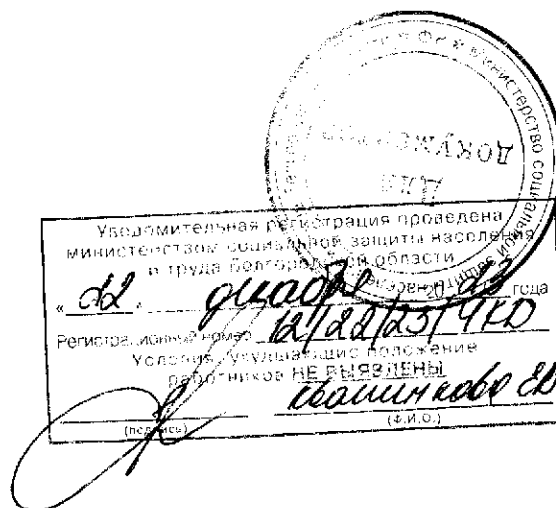 Министерство социальной защиты
Для
документов
Уведомительная регистрация проведена
министерством социальной защиты населения
и труда Белгородской области
«22» декабря 2023 года
Регистрационный номер 12/22/23/
Условия, ухудшающие положение
работников НЕ ВЫЯВЛЕНЫ
(подпись) (Ф.И.О.)